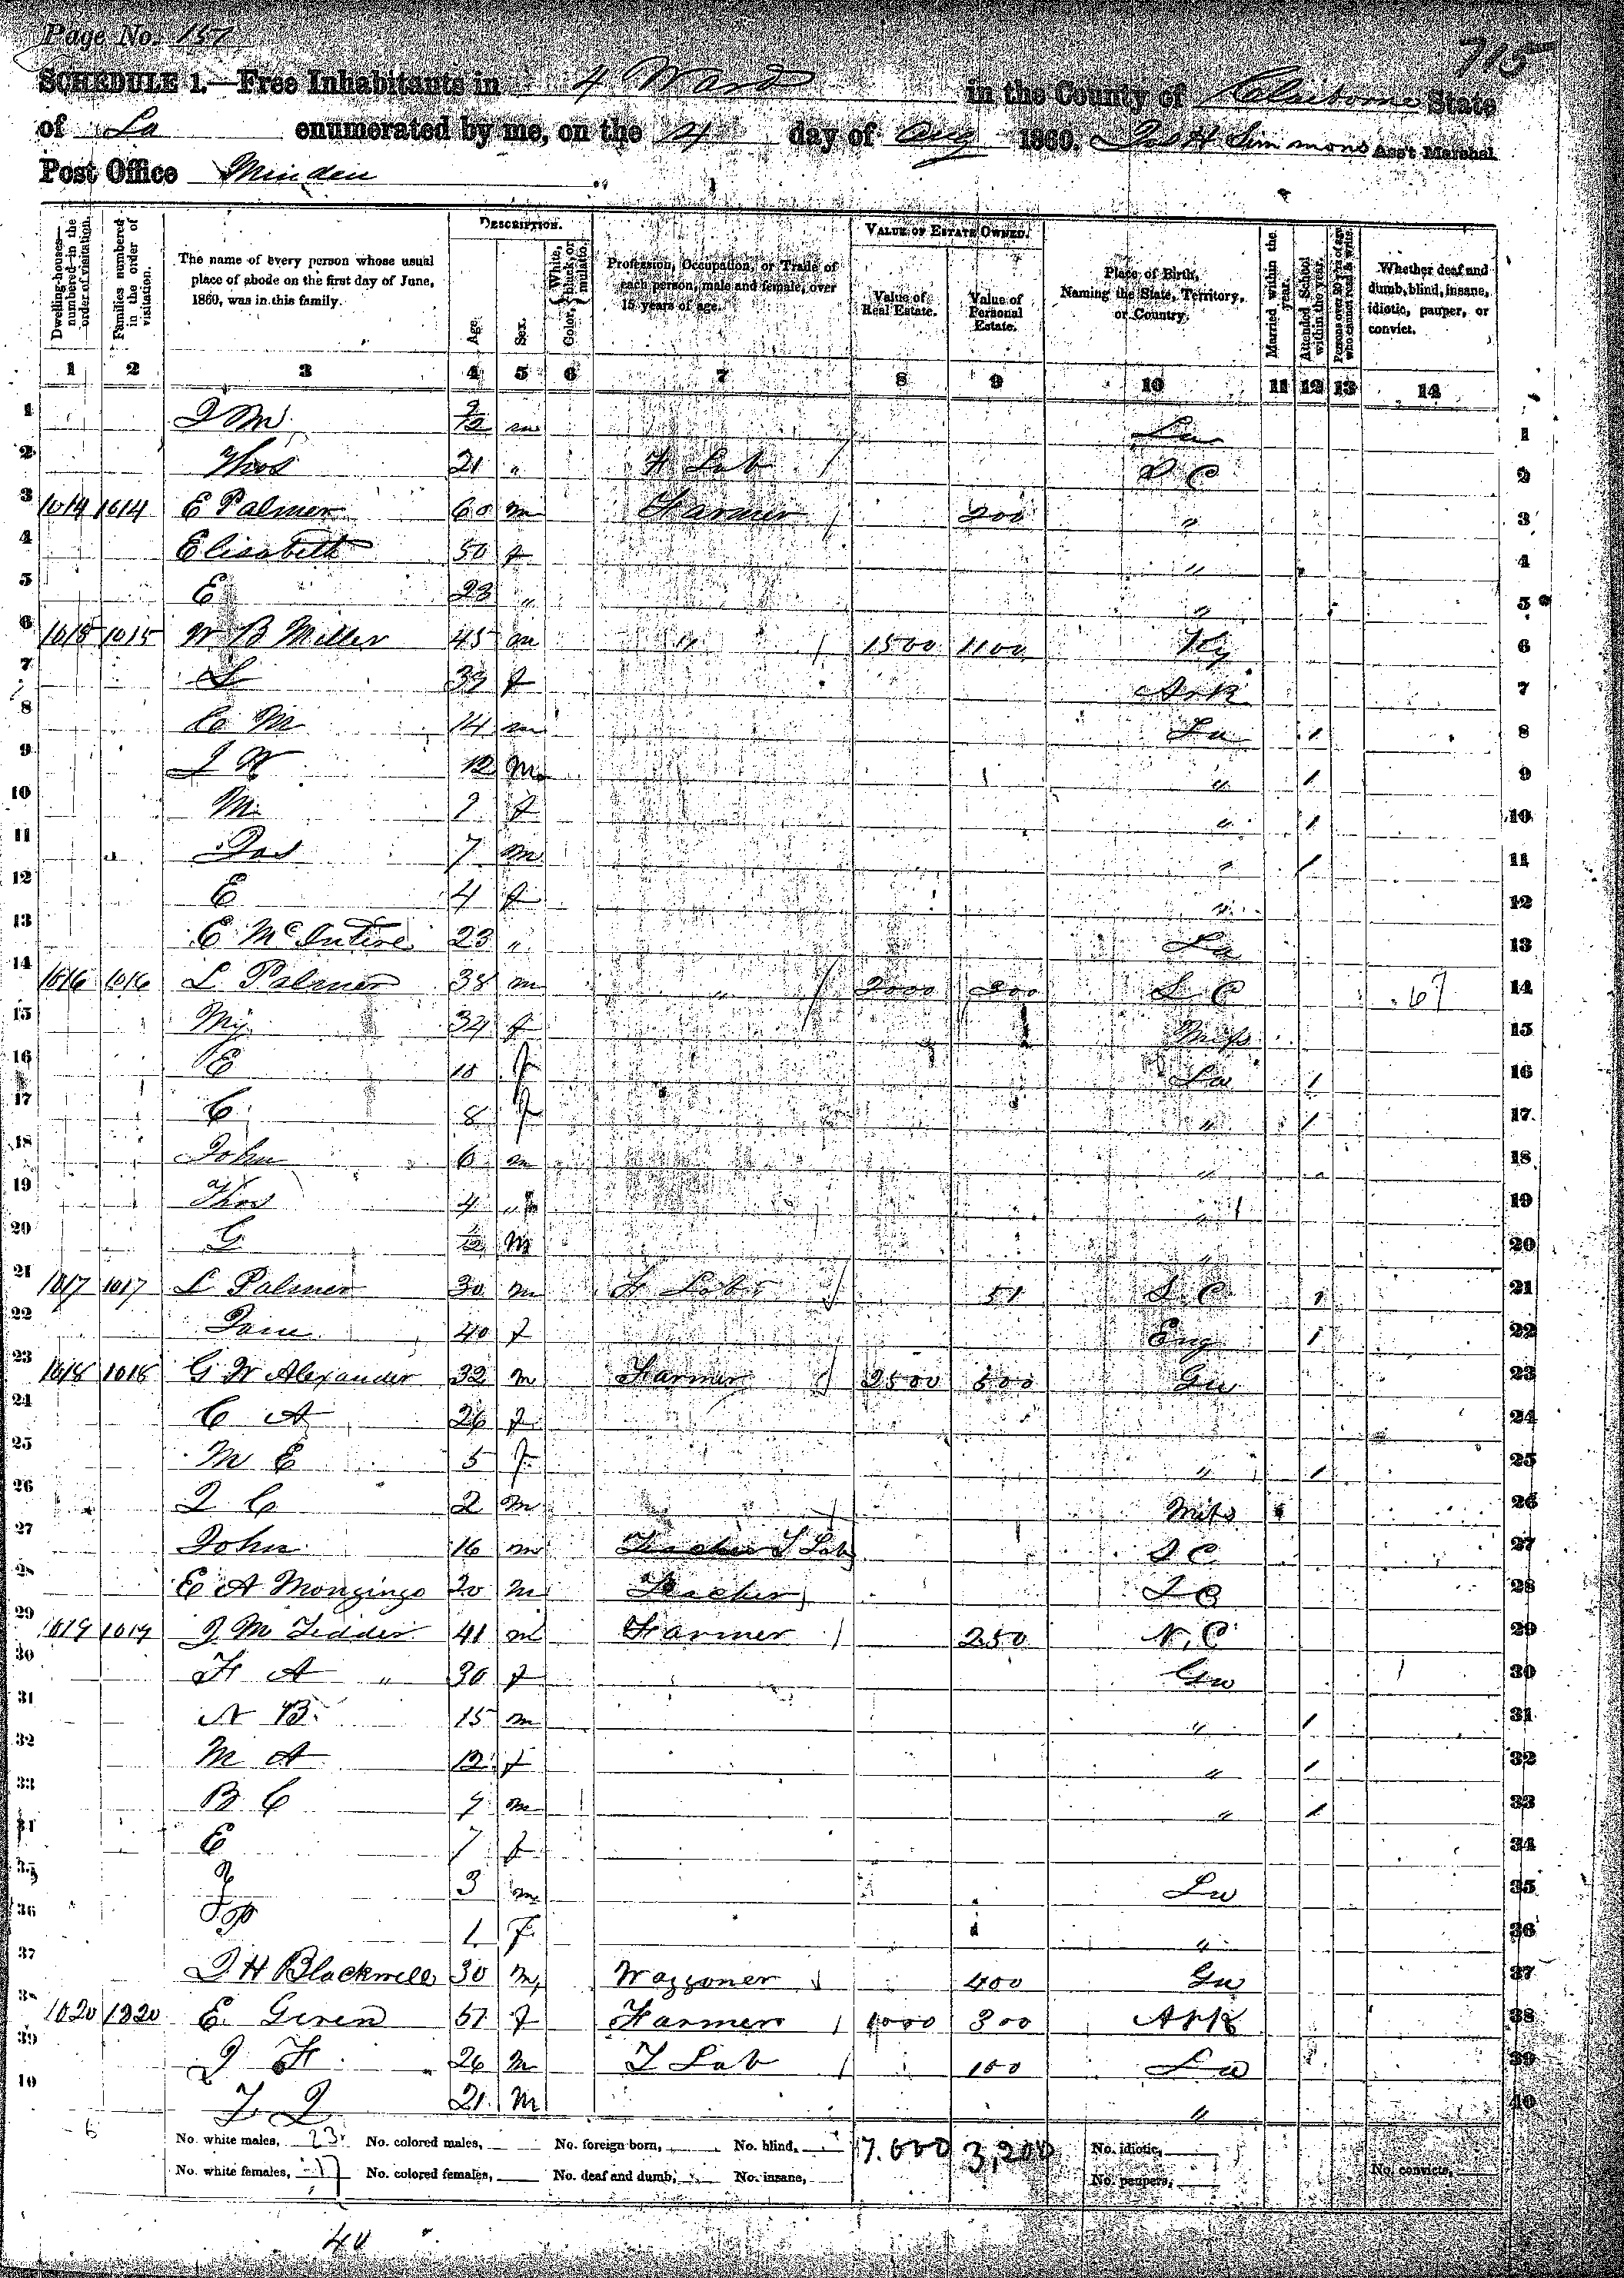 Page No. 157
715
SCHEDULE 1.—Free Inhabitants in 4 Ward in the County of Claiborne State
of La enumerated by me, on the 4 day of Aug 1860. Jas H Simmons Ass't Marshal.
Post Office Minden
Dwelling-houses—numbered in the order of visitation.
Families numbered in the order of visitation.
The name of every person whose usual place of abode on the first day of June, 1860, was in this family.
DESCRIPTION.
Age.
Sex.
Color, { White, black, or mulatto.
Profession, Occupation, or Trade of each person, male and female, over 15 years of age.
VALUE OF ESTATE OWNED.
Value of Real Estate.
Value of Personal Estate.
Place of Birth, Naming the State, Territory, or Country.
Married within the year.
Attended School within the year.
Persons over 20 y'rs of age who cannot read & write.
Whether deaf and dumb, blind, insane, idiotic, pauper, or convict.
1 2 3 4 5 6 7 8 9 10 11 12 13 14
1 J M m La 1
2 Thos 21 " F Lab S C 2
3 1014 1014 E Palmer 60 m Farmer 200 " 3
4 Elisabeth 50 f " 4
5 E 23 " " 5
6 1015 1015 W B Miller 45 m " 1500 1100 Ky 6
7 S 33 f Ark 7
8 C M 14 m La / 8
9 J W 12 m " / 9
10 M f " / 10
11 Jas 7 m " / 11
12 E 4 f " 12
13 E McIntire 23 " La 13
14 1016 1016 L Palmer 38 m " 2000 200 S C 67 14
15 My 34 f Miss 15
16 E 10 f La / 16
17 C 8 f " / 17
18 John 6 m " 18
19 Thos 4 " " 19
20 G m " 20
21 1017 1017 L Palmer 30 m F Lab 51 S C / 21
22 Jane 40 f Eng / 22
23 1018 1018 G W Alexander 32 m Farmer 2500 500 Ga 23
24 C A 26 f 24
25 M E 5 f " / 25
26 J C 2 m Miss 26
27 John 16 m F Lab S C 27
28 E A Mongingo 20 m Teacher S C 28
29 1019 1019 J M Tedder 41 m Farmer 250 N. C 29
30 F A " 30 f Ga 30
31 A B 15 m " / 31
32 M A 12 f " / 32
33 B C 9 m " / 33
34 E 7 f 34
35 J 3 m La 35
36 1 F " 36
37 J H Blackwell 30 m Waggoner 400 Ga 37
38 1020 1320 E Given 51 f Farmer 1000 300 Ark 38
39 J F 26 m F Lab 100 La 39
40 21 m " 40
6 No. white males, 23 No. colored males, No. foreign born, No. blind, 17.000 3,200 No. idiotic,
No. white females, 17 No. colored females, No. deaf and dumb, No. insane, No. paupers, No. convicts,
40